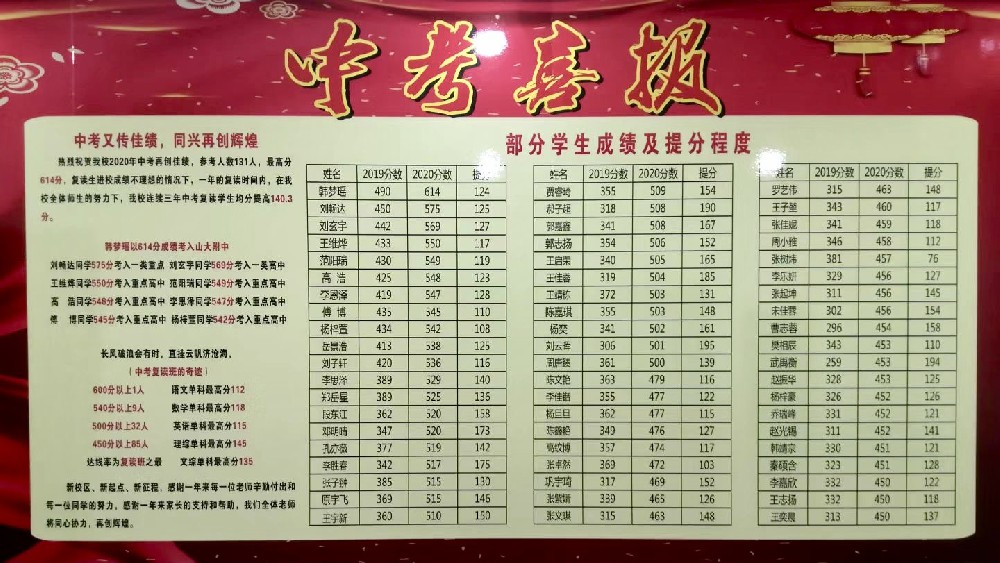 中考喜报
中考又传佳绩，同兴再创辉煌
热烈祝贺我校2020年中考再创佳绩，参考人数131人，最高分
614分，复读生进校成绩不理想的情况下，一年的复读时间内，在我
校全体师生的努力下，我校连续三年中考复读学生均分提高140.3
分。
韩梦瑶以614分成绩考入山大附中
刘畅达同学575分考入一类重点 刘玄宇同学569分考入一类高中
王维烨同学550分考入重点高中 范阳瑞同学549分考入重点高中
高 浩同学548分考入重点高中 李恩泽同学547分考入重点高中
傅 博同学545分考入重点高中 杨梓萱同学542分考入重点高中
长风破浪会有时，直挂云帆济沧海。
（中考复读班的奇迹）
600分以上1人 语文单科最高分112
540分以上9人 数学单科最高分118
500分以上32人 英语单科最高分115
450分以上85人 理综单科最高分145
达线率为复读班之最 文综单科最高分135
新校区、新起点、新征程，感谢一年来每一位老师辛勤付出和
每一位同学的努力，感谢一年来家长的支持和帮助，我们全体老师
将同心协力，再创辉煌。
部分学生成绩及提分程度
姓名 2019分数 2020分数 提分
韩梦瑶 490 614 124
刘畅达 450 575 125
刘玄宇 442 569 127
王维烨 433 550 117
范阳瑞 430 549 119
高 浩 425 548 123
李恩泽 419 547 128
傅 博 435 545 110
杨梓萱 434 542 108
岳景浩 413 538 125
刘子轩 420 536 116
李思泽 389 529 140
郑岳星 389 525 136
段东江 362 520 158
邓明晴 347 520 173
孔亦薇 377 519 142
李胜春 342 517 175
张子翀 385 515 130
原宇飞 369 515 146
王宇新 360 510 150
姓名 2019分数 2020分数 提分
贾睿琦 355 509 154
郝子超 318 508 190
郭嘉鑫 341 508 167
郭志扬 354 506 152
王启荣 340 505 165
王佳蓉 319 504 185
王靖栋 372 503 131
陈嘉琪 355 503 148
杨奕 341 502 161
刘云希 306 501 195
周唐臻 361 500 139
陈文艳 363 479 116
李佳锴 355 477 122
杨旦旦 362 477 115
陈鑫艳 349 476 127
葛纹博 357 474 117
张卓然 369 472 103
巩宇琦 317 469 152
张紫娟 339 465 126
张文琪 315 463 148
姓名 2019分数 2020分数 提分
罗艺伟 315 463 148
王子堃 343 460 117
张佳妮 341 459 118
周小雅 346 458 112
张树炜 381 457 76
李乐妍 329 456 127
张起坤 311 456 145
未佳蓉 302 456 154
曹志蓉 296 454 158
樊相辰 343 453 110
武禹衡 259 453 194
赵振华 328 453 125
杨梓豪 326 452 126
乔瑞峰 331 452 121
赵光楊 311 452 141
韩靖宗 330 451 121
秦硕含 323 451 128
李嘉欣 332 450 122
王志扬 332 450 118
王奕晨 313 450 137